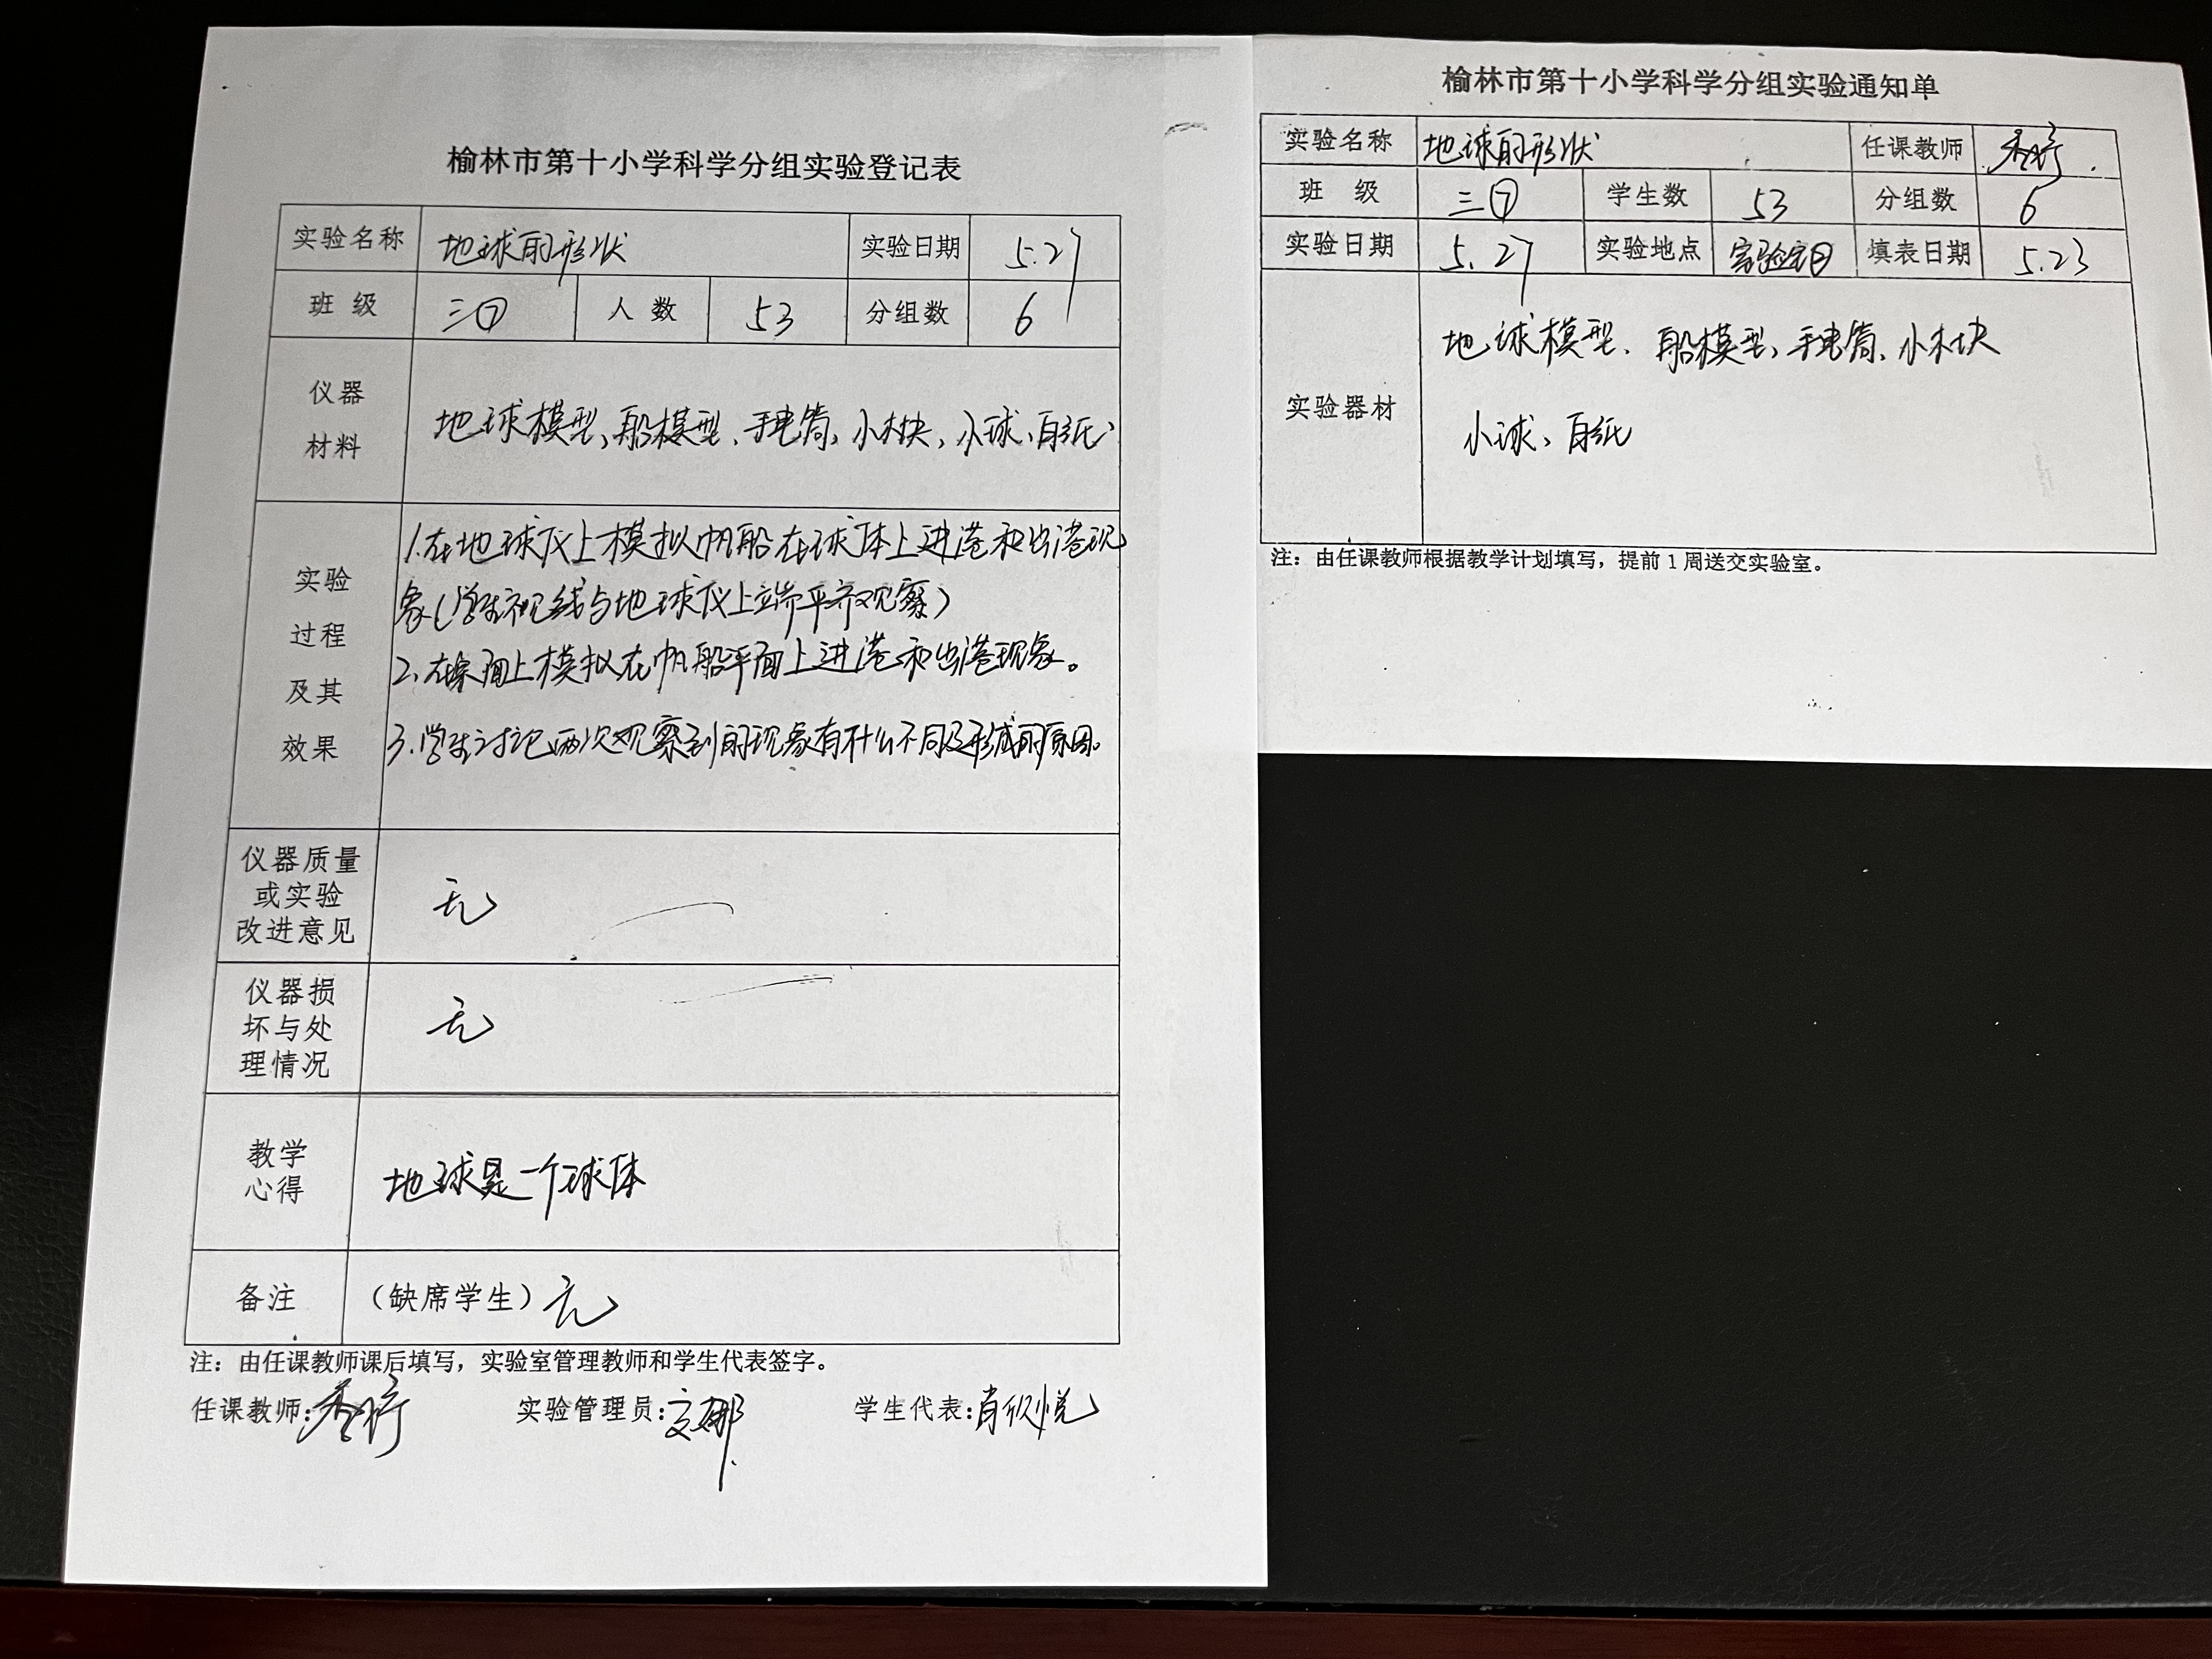 榆林市第十小学科学分组实验登记表
实验名称 地球的形状 实验日期 5.27
班 级 三⑦ 人 数 53 分组数 6
仪器
材料
地球模型、船模型、手电筒、小木块、小球、白纸
实验
过程
及其
效果
1.在地球仪上模拟帆船在球体上进港和出港现
象(学生视线与地球仪上端平齐观察)
2.在桌面上模拟在帆船平面上进港和出港现象。
3.学生讨论两次观察到的现象有什么不同及形成的原因。
仪器质量
或实验
改进意见
无
仪器损
坏与处
理情况
无
教学
心得
地球是一个球体
备注 （缺席学生）无
注：由任课教师课后填写，实验室管理教师和学生代表签字。
任课教师: 实验管理员: 学生代表:肖欣悦
榆林市第十小学科学分组实验通知单
实验名称 地球的形状 任课教师
班 级 三⑦ 学生数 53 分组数 6
实验日期 5.27 实验地点 实验室 填表日期 5.23
实验器材
地球模型、船模型、手电筒、小木块
小球、白纸
注：由任课教师根据教学计划填写，提前1周送交实验室。